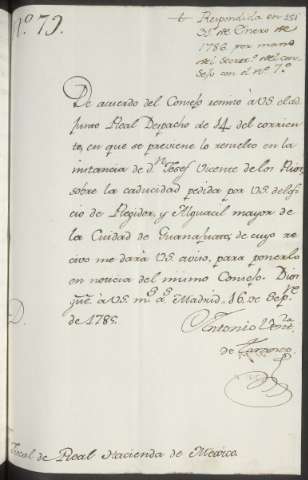 N.º 79.
Respondida en
31 de Enero de
1786 por mano
del Secret.º del Con-
sejo con el nº 7.º
De acuerdo del Consejo remito à VS el ad-
junto Real Despacho de 14 del corrien-
te, en que se previene lo resuelto en la
instancia de d.n Josef Vicente de los Rios,
sobre la caducidad pedida por VS del ofi-
cio de Regidor, y Alguacil mayor de
la Ciudad de Guanajuato, de cuyo re-
civo me dará VS aviso, para ponerlo
en noticia del mismo Consejo. Dios
gue. à VS m.s a.s Madrid 16 de Sep.re
de 1785.
Antonio Vent.ra
de Taranco
Fiscal de Real Hacienda de Mexico.